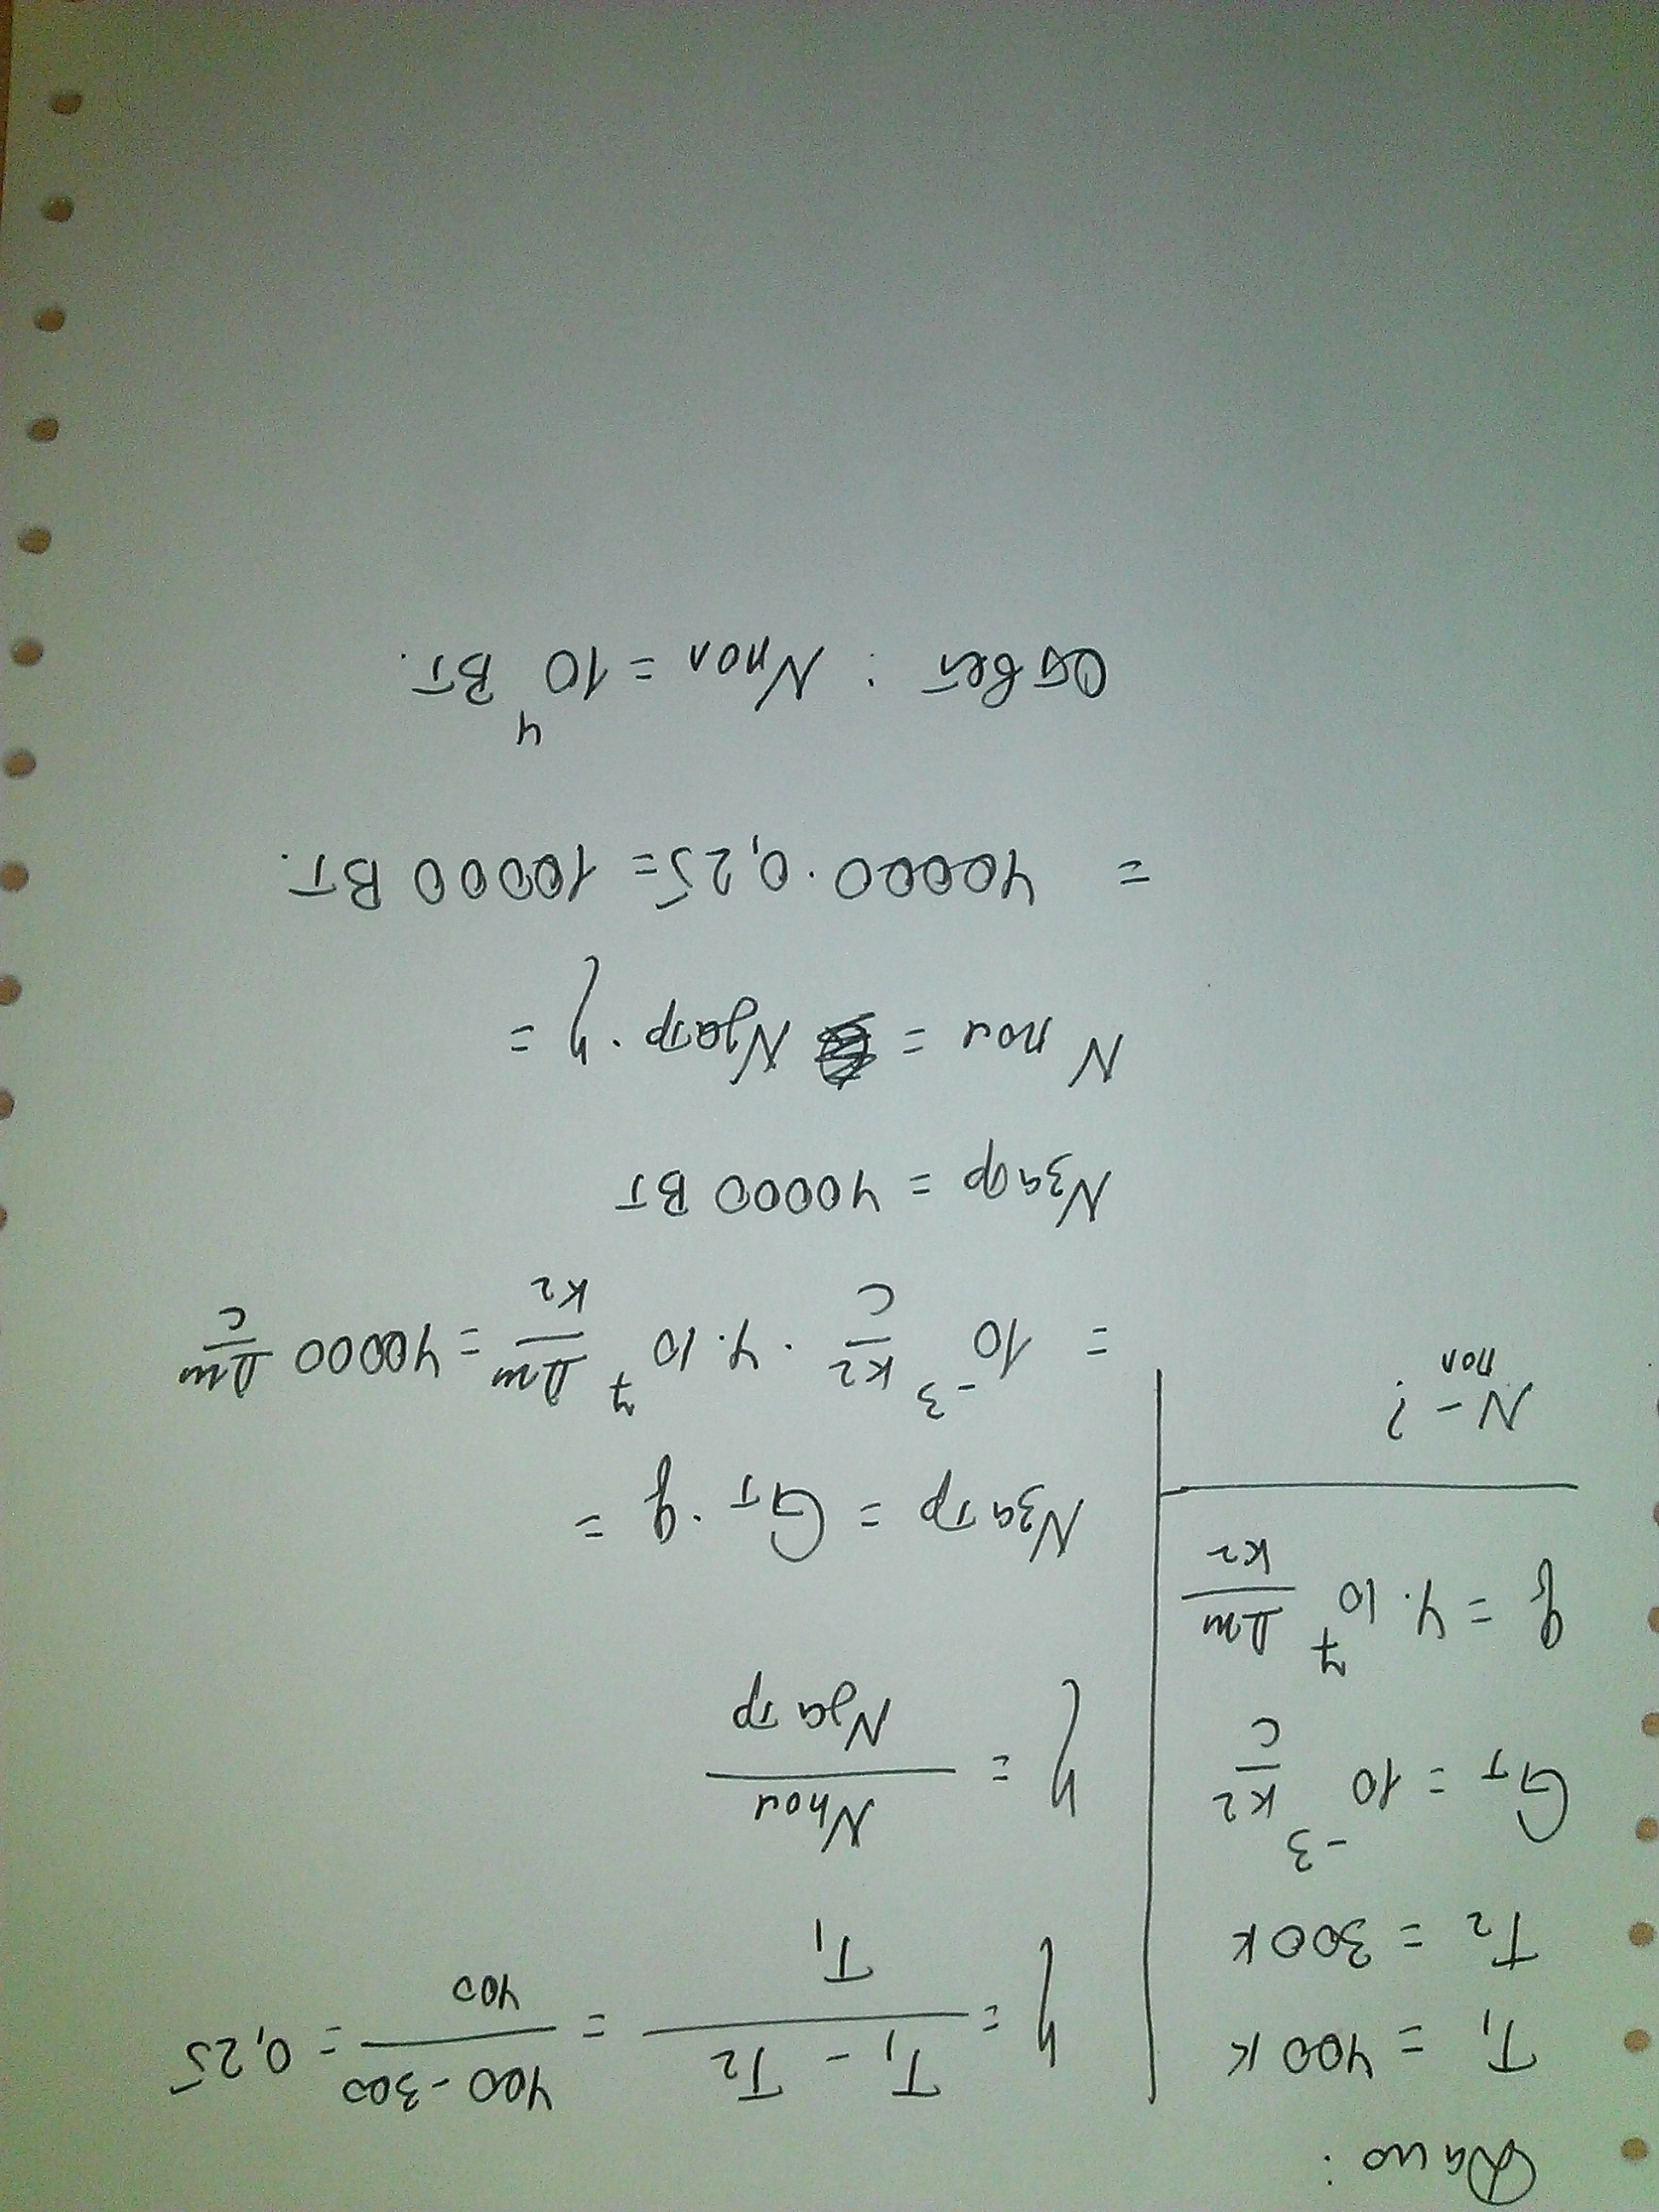 Дано:
T₁ = 400 К
T₂ = 300 К
Gт = 10⁻³ кг/с
q = 4·10⁷ Дж/кг
Nпол - ?
η = (T₁ - T₂)/T₁ = (400 - 300)/400 = 0,25
η = Nпол/Nзатр
Nзатр = Gт · q =
= 10⁻³ кг/с · 4·10⁷ Дж/кг = 40000 Дж/с
Nзатр = 40000 Вт
Nпол = Nзатр · η =
= 40000 · 0,25 = 10000 Вт.
Ответ: Nпол = 10⁴ Вт.